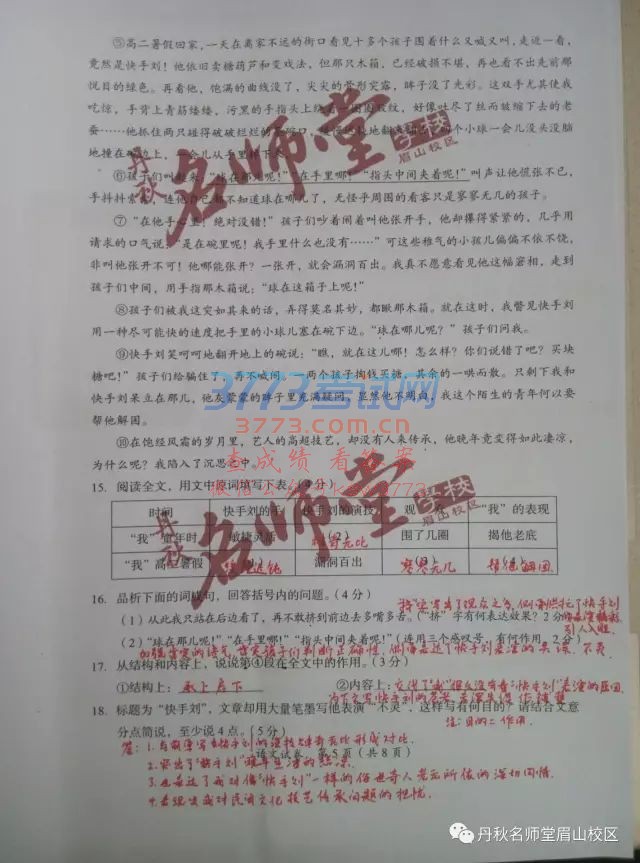 ⑤高二暑假回家,一天在离家不远的街口看见十多个孩子围着什么又喊又叫,走近一看,
竟然是快手刘!他依旧卖糖葫芦和变戏法,但那只木箱,已经破损不堪,再也看不出先前那
悦目的绿色。再看他,饱满的曲线没了,尖尖的骨形突露,眸子没了光彩。这双手尤其使我
吃惊,手背上青筋缕缕,污黑的手指头上绕着一圈圈皱纹,好像吐尽了丝而皱缩下去的老
蚕……他抓住两只碰得破破烂烂的
个小球一会儿没头没脑
地撞在碗边上,一会儿从手里掉下来。
⑥孩子们叫起来,“球在那儿呢!”“在手里哪!”“指头中间夹着呢!”叫声让他慌张不已,
手抖抖索索,连他自己都不知道球在哪儿了,无怪乎周围的看客只是寥寥无几的孩子。
⑦“在他手心里!绝对没错!”孩子们吵着闹着叫他张开手,他却攥得紧紧的,几乎用
请求的口气说:“是在碗里呢!我手里什么也没有……”可这些稚气的小孩儿偏偏不依不饶,
非叫他张开不可!他哪能张开?一张开,就会漏洞百出。我真不愿意看见他这幅窘相,走到
孩子们中间,用手指那木箱说:“球在这箱子上呢!”
⑧孩子们被我这突如其来的话,弄得莫名其妙,都瞅那木箱。就在这时,我瞥见快手刘
用一种尽可能快的速度把手里的小球儿塞在碗下边。“球在哪儿呢?”孩子们问我。
⑨快手刘笑呵呵地翻开地上的碗说:“瞧,就在这儿哪!怎么样?你们说错了吧?买块
糖吧!”孩子们给骗住了,再不喊闹。一两个孩子掏钱买糖,其余的一哄而散。只剩下我和
快手刘呆立在那儿,他灰蒙蒙的眸子里充满疑问,显然他不明白,我这个陌生的青年何以要
帮他解围。
⑩在饱经风霜的岁月里,艺人的高超技艺,却没有人来传承,他晚年竟变得如此凄凉,
为什么呢?我陷入了沉思之中。
15. 阅读全文,用文中原词填写下表。(4分)
时间 快手刘的手 快手刘的演技 观 “我”的表现
“我”童年时 敏捷灵活 无比 围了几圈 揭他老底
“我”高二暑假 漏洞百出 寥寥无几 帮他解围
16. 品析下面的词或句,回答括号内的问题。(4分)
(1)从此我只站在后边看了,再不敢挤到前边去多嘴多舌。(“挤”字有何表达效果?2分)
引人入胜
(2)“球在那儿呢!”“在手里哪!”“指头中间夹着呢!”(连用三个感叹号,有何作用,2分)
17. 从结构和内容上,说说第④段在全文中的作用。(3分)
①结构上:承上启下 ②内容上:
18. 标题为“快手刘”,文章却用大量笔墨写他表演“不灵”,这样写有何目的?请结合文意
分点简说,至少说4点。(5分) 注:目的=作用
答:1.与前面写“快手刘”的演技上奇无比形成对比.
2.突出了“快手刘”晚年生活的悲凉.
语文试卷 第5页(共8页)
3.也表达了我对像“快手刘”一样的传世奇人老无所依的深切同情.
4.表现出我对民间文化技艺传承问题的担忧.
丹秋
名师堂
学校
眉山校区
3773考试网
www.3773.com.cn
查成绩 看答案
丹秋
名师堂
学校
眉山校区
丹秋名师堂眉山校区